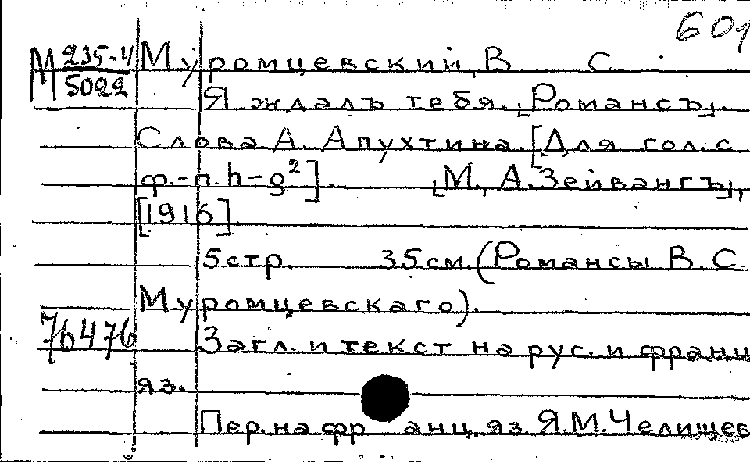 601
М 235-4 Муромцевский, В. С.
5022
Я ждалъ тебя. [Романсъ].
Слова А. Апухтина. [Для гол. с
ф.-п. h-g²]. [М., А. Зейвангъ],
[1916].
5 стр. 35 см. (Романсы В. С.
Муромцевскаго).
76476 Загл. и текст на рус. и франц.
яз.
Пер. на франц. яз. Я.М. Челищев